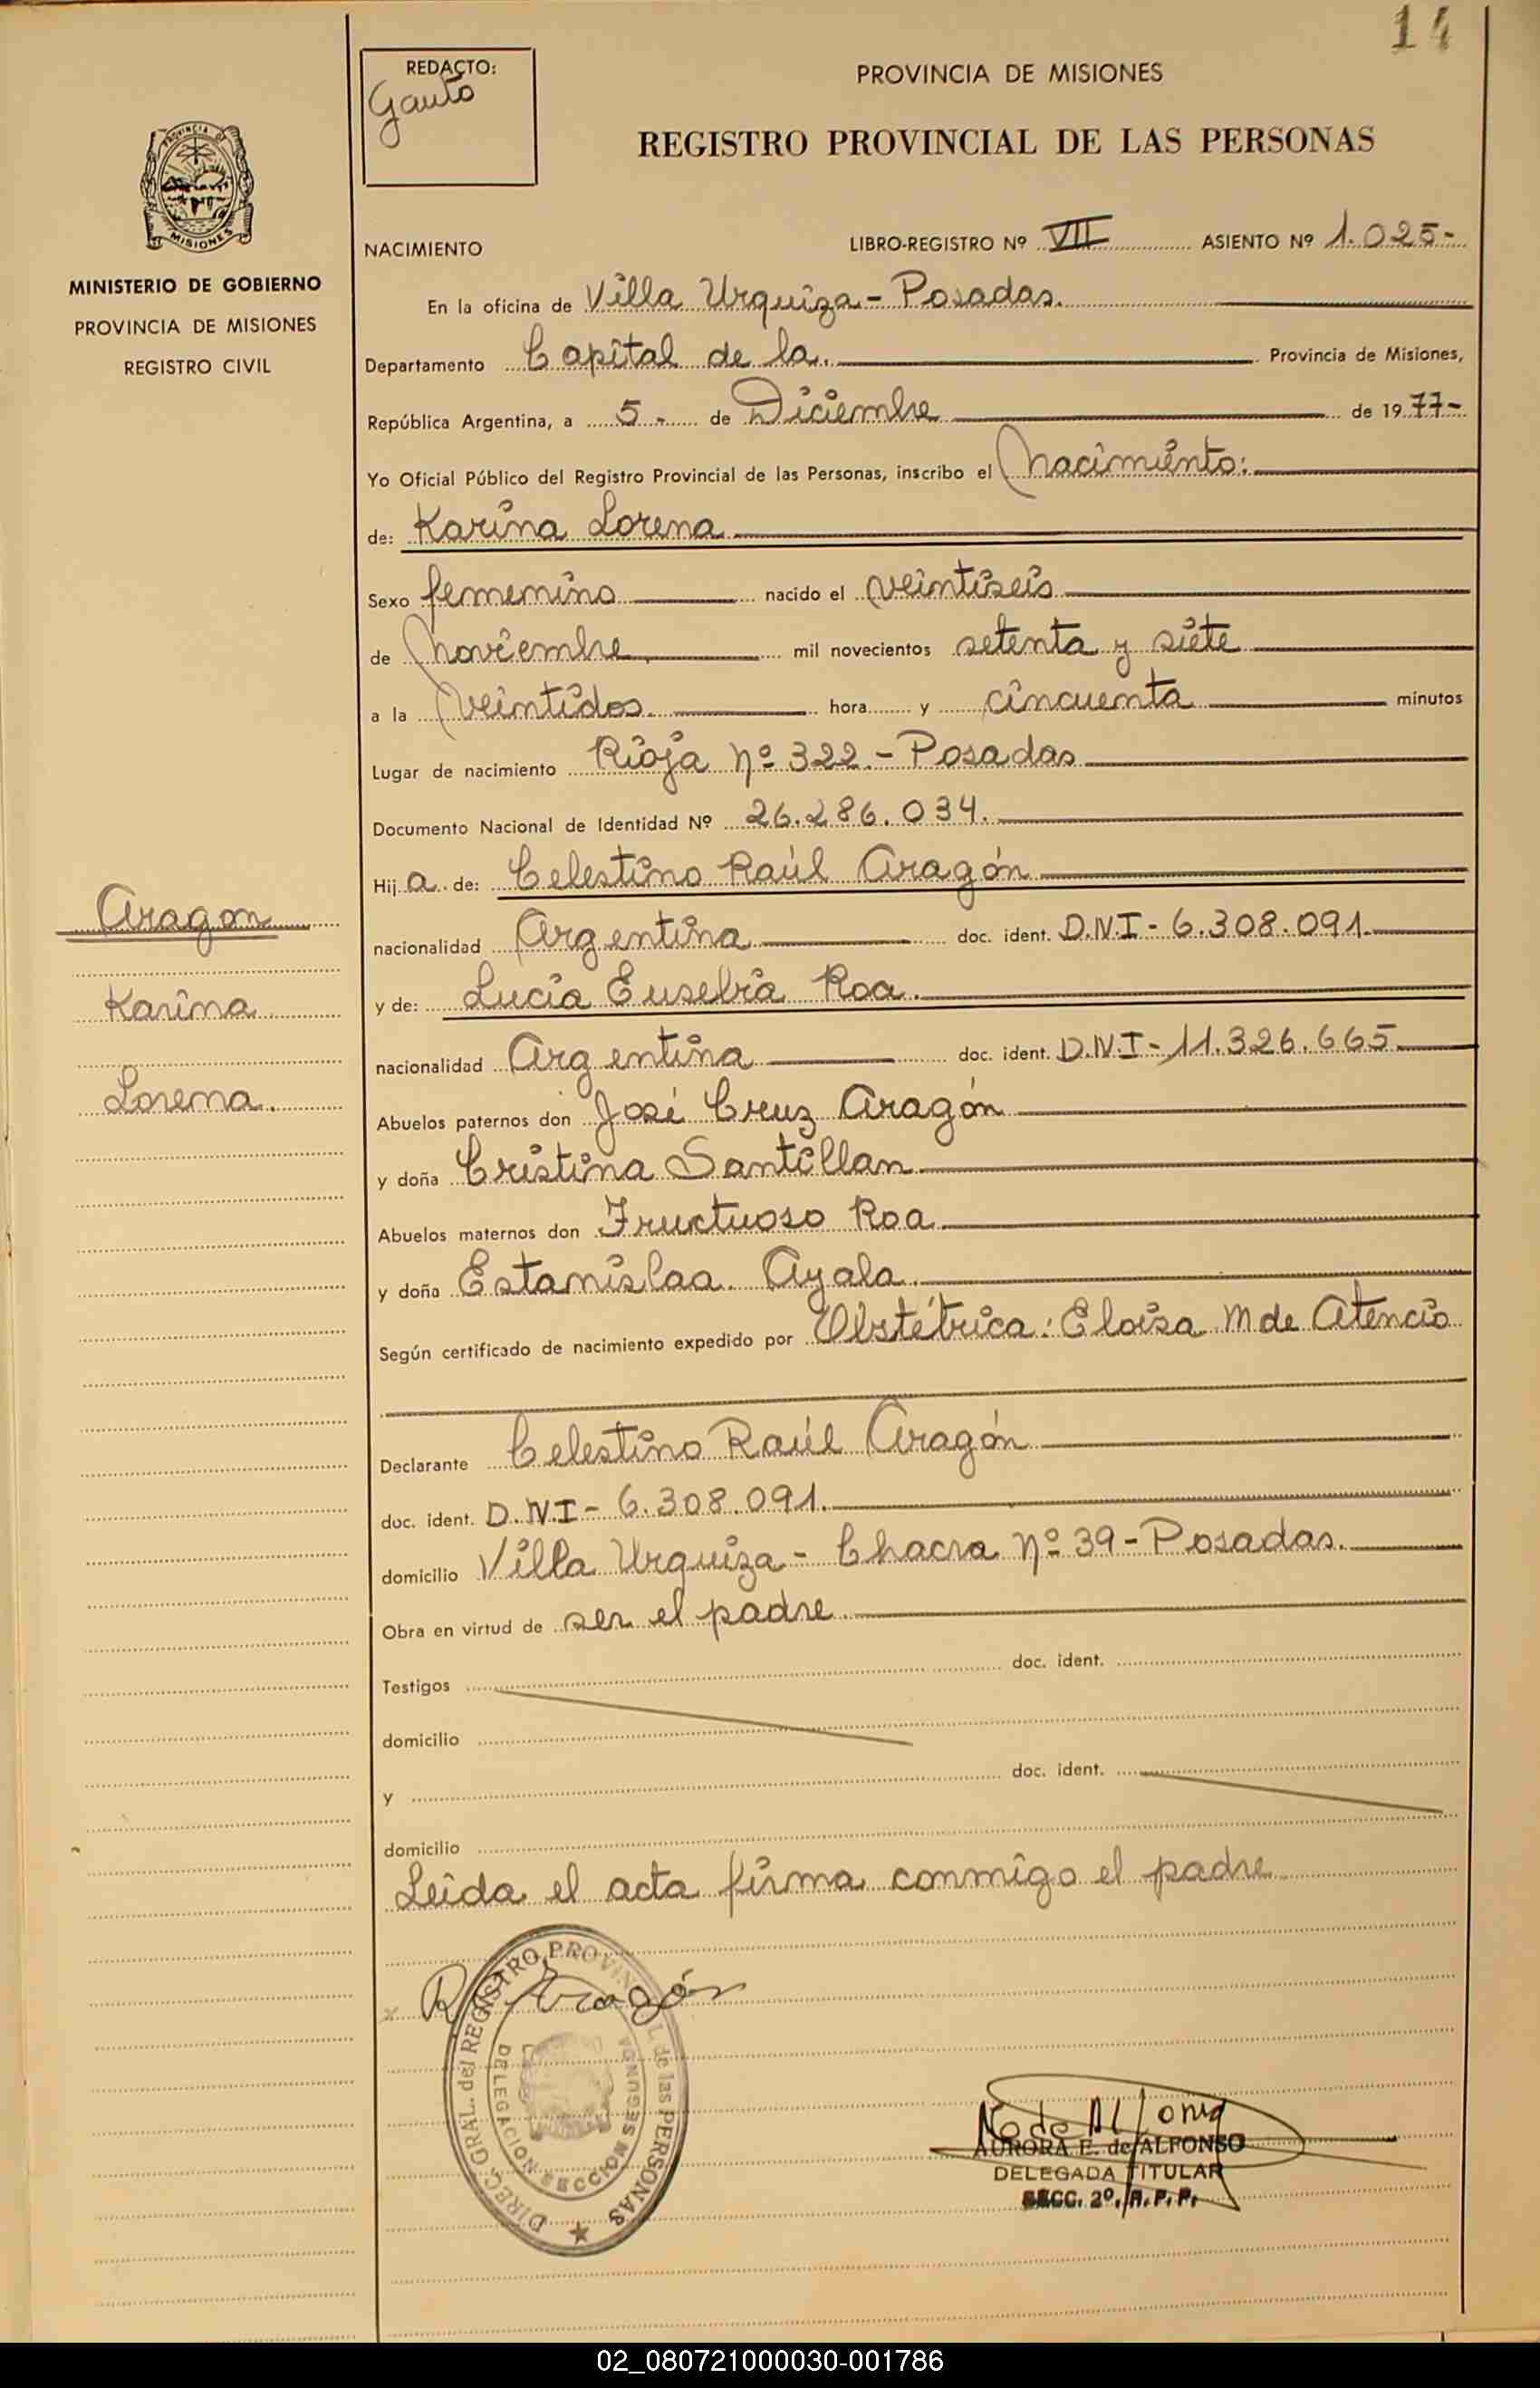 14
REDACTO:
Gauto
PROVINCIA DE MISIONES
REGISTRO PROVINCIAL DE LAS PERSONAS
PROVINCIA DE
MISIONES
MINISTERIO DE GOBIERNO
PROVINCIA DE MISIONES
REGISTRO CIVIL
NACIMIENTO LIBRO-REGISTRO Nº VII ASIENTO Nº 1.025-
En la oficina de Villa Urquiza - Posadas.
Departamento Capital de la. Provincia de Misiones,
República Argentina, a 5 - de Diciembre de 1977-
Yo Oficial Público del Registro Provincial de las Personas, inscribo el Nacimiento:
de: Karina Lorena
Sexo femenino nacido el veintiseis
de Noviembre mil novecientos setenta y siete
a la veintidos hora y cincuenta minutos
Lugar de nacimiento Rioja Nº 322 - Posadas
Documento Nacional de Identidad Nº 26.286.034.
Hij a de: Celestino Raúl Aragón
nacionalidad Argentina doc. ident. D.N.I - 6.308.091
y de: Lucía Eusebia Roa.
nacionalidad Argentina doc. ident. D.N.I - 11.326.665
Abuelos paternos don José Cruz Aragón
y doña Cristina Santillan
Abuelos maternos don Fructuoso Roa
y doña Estanislaa Ayala
Según certificado de nacimiento expedido por Obstétrica: Eloisa M de Atencio
Declarante Celestino Raúl Aragón
doc. ident. D.N.I - 6.308.091.
domicilio Villa Urquiza - Chacra Nº 39 - Posadas.
Obra en virtud de ser el padre
Testigos doc. ident.
domicilio
y doc. ident.
domicilio
Leida el acta firma conmigo el padre
Aragon
Karina
Lorena.
R Aragón
DIREC. GRAL. del REGISTRO PROVINCIAL de las PERSONAS
DELEGACION SECCION SEGUNDA
AURORA E. de ALFONSO
DELEGADA TITULAR
SECC. 2º, R.P.P.
02_080721000030-001786